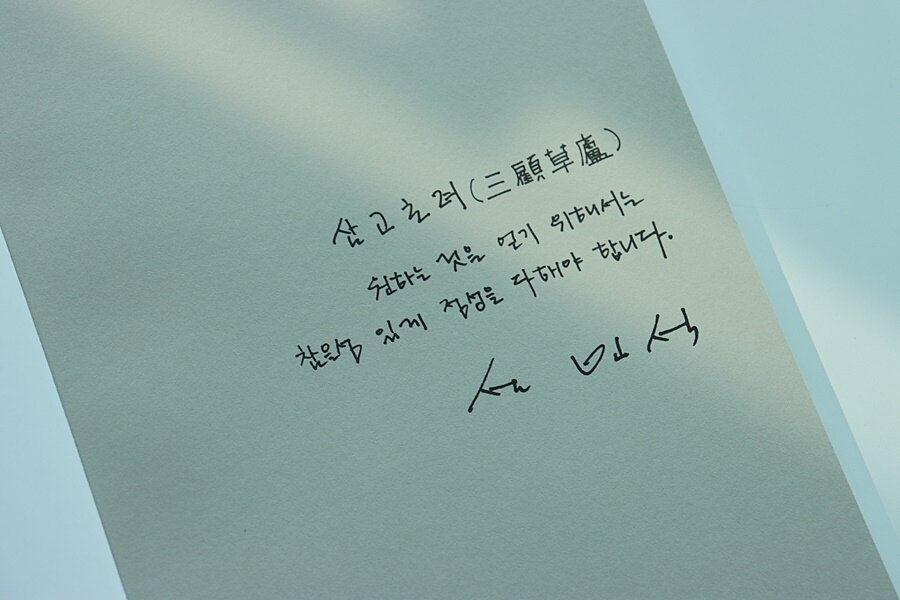 삼고초려(三顧草廬)
원하는 것을 얻기 위해서는
참을성 있게 정성을 다해야 합니다.
설민석